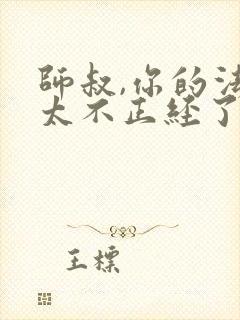 师叔,你的法
太不正经了
王標